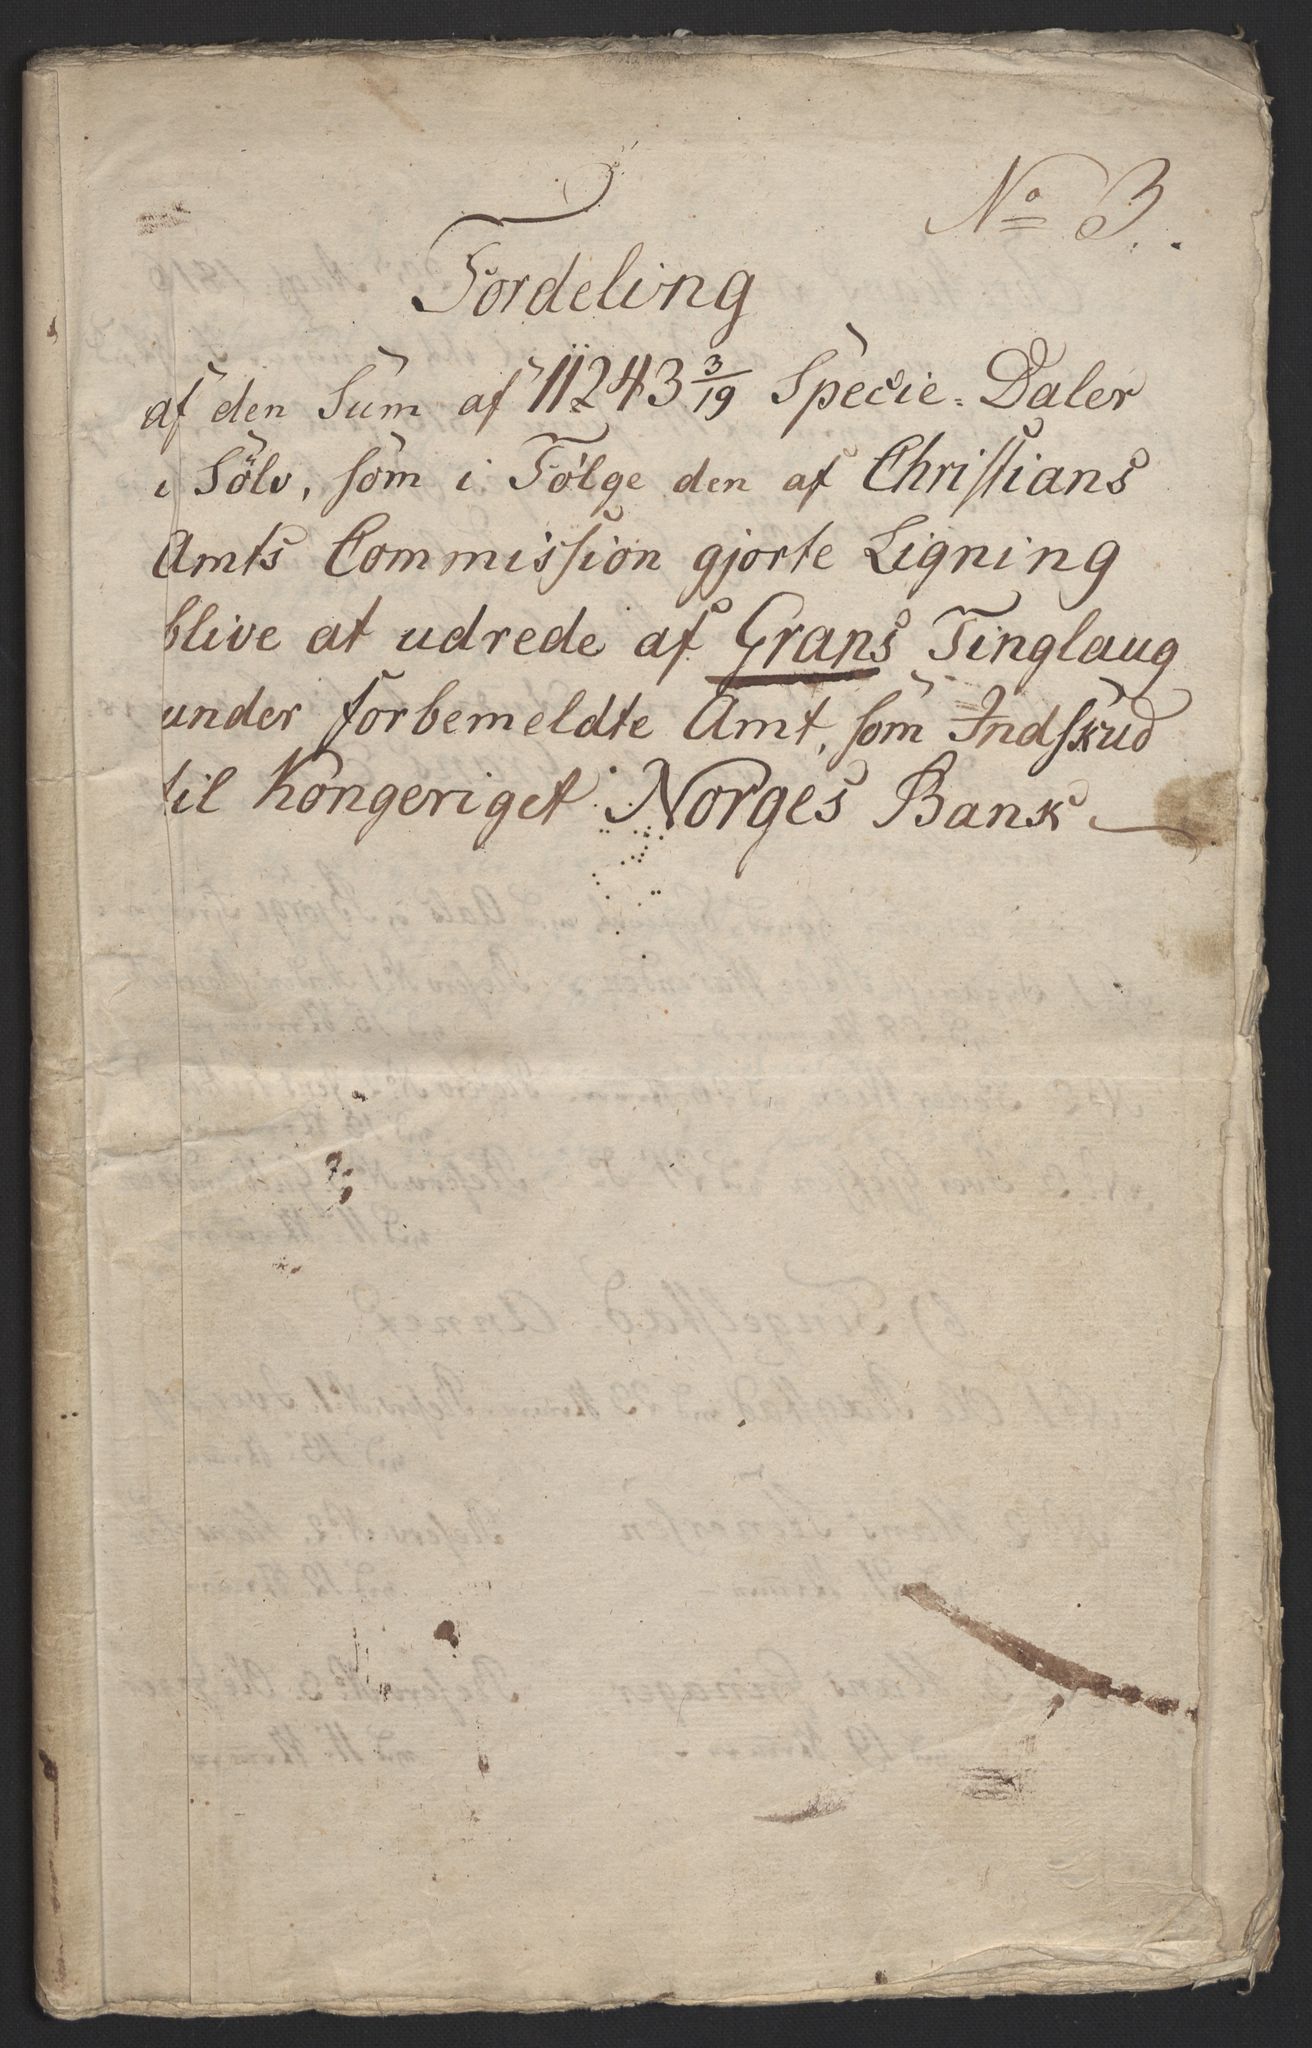 No 3.
Fordeling
af den Sum af 11243 3/19 Specie-Daler
i Sölv, som i Følge den af Christians
Amts Commission gjorte Ligning
blive at udrede af Grans Tinglaug
under forbemeldte Amt, som Indskud
til Kongeriget Norges Bank